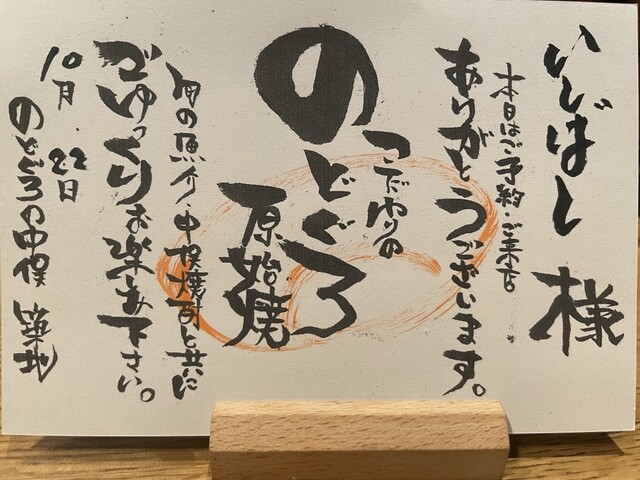 いしばし 様
本日はご予約・ご来店
ありがとうございます。
こだわりの
のどぐろ
原始焼
旬の魚介・中俣焼酎と共に
ごゆっくりお楽しみ下さい。
10月.22日
のどぐろの中俣 築地